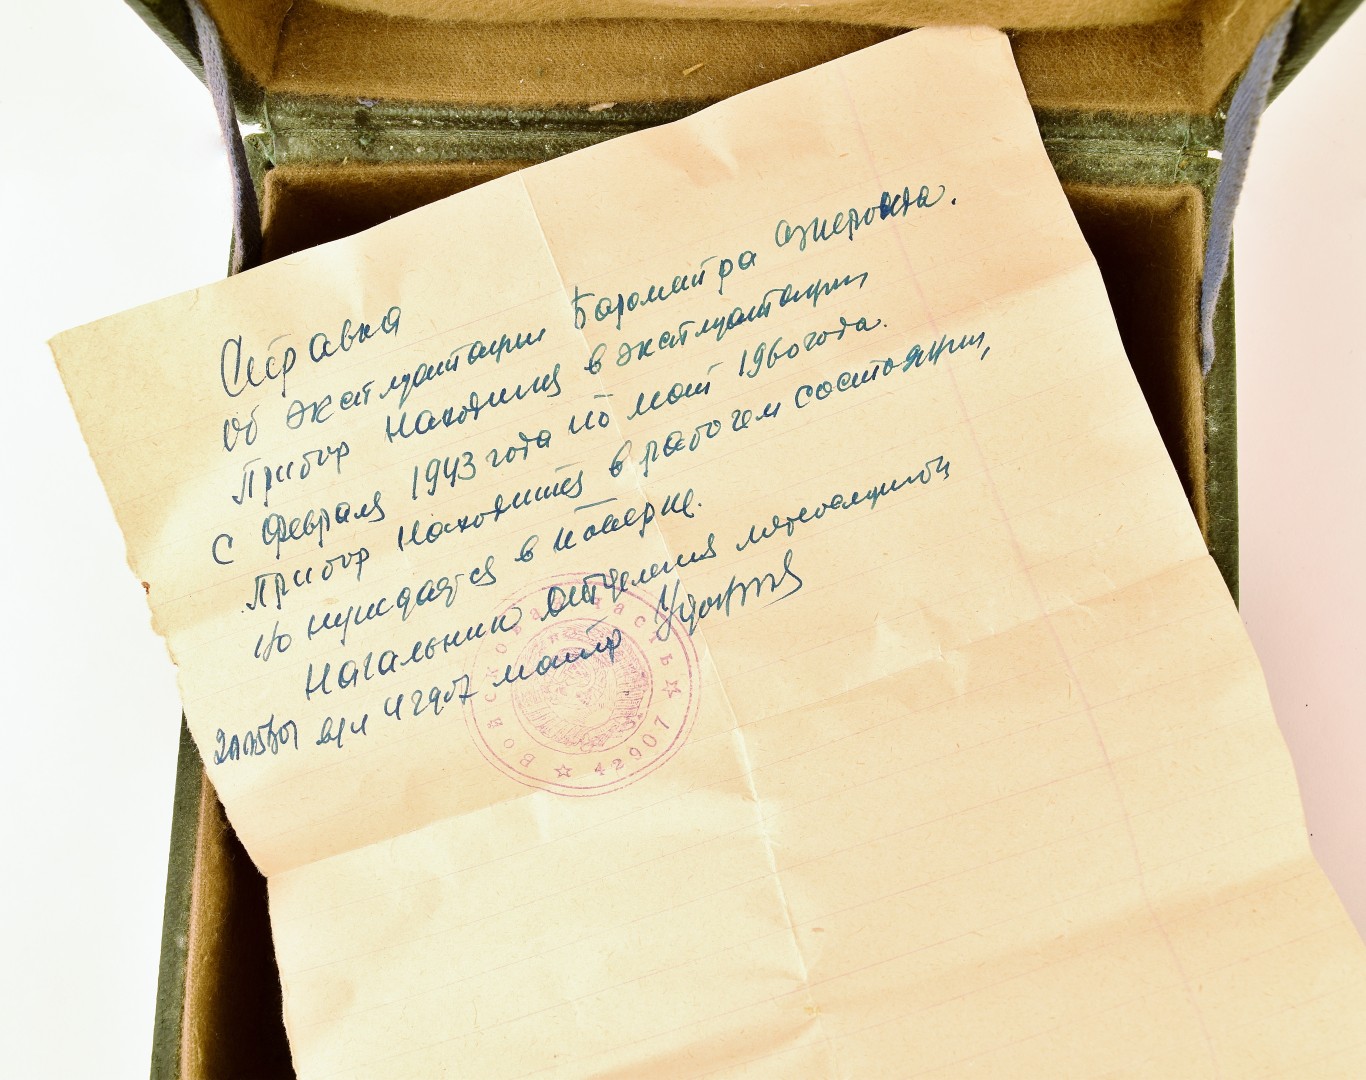 Справка
об эксплуатации Барометра анероида.
Прибор находится в эксплуатации
с февраля 1943 года по май 1960 года.
Прибор находится в рабочем состояции,
но нуждается в поверке.
Начальник отделения метеослужбы
в/ч майор
Войсковая часть ☆ 42907 ☆